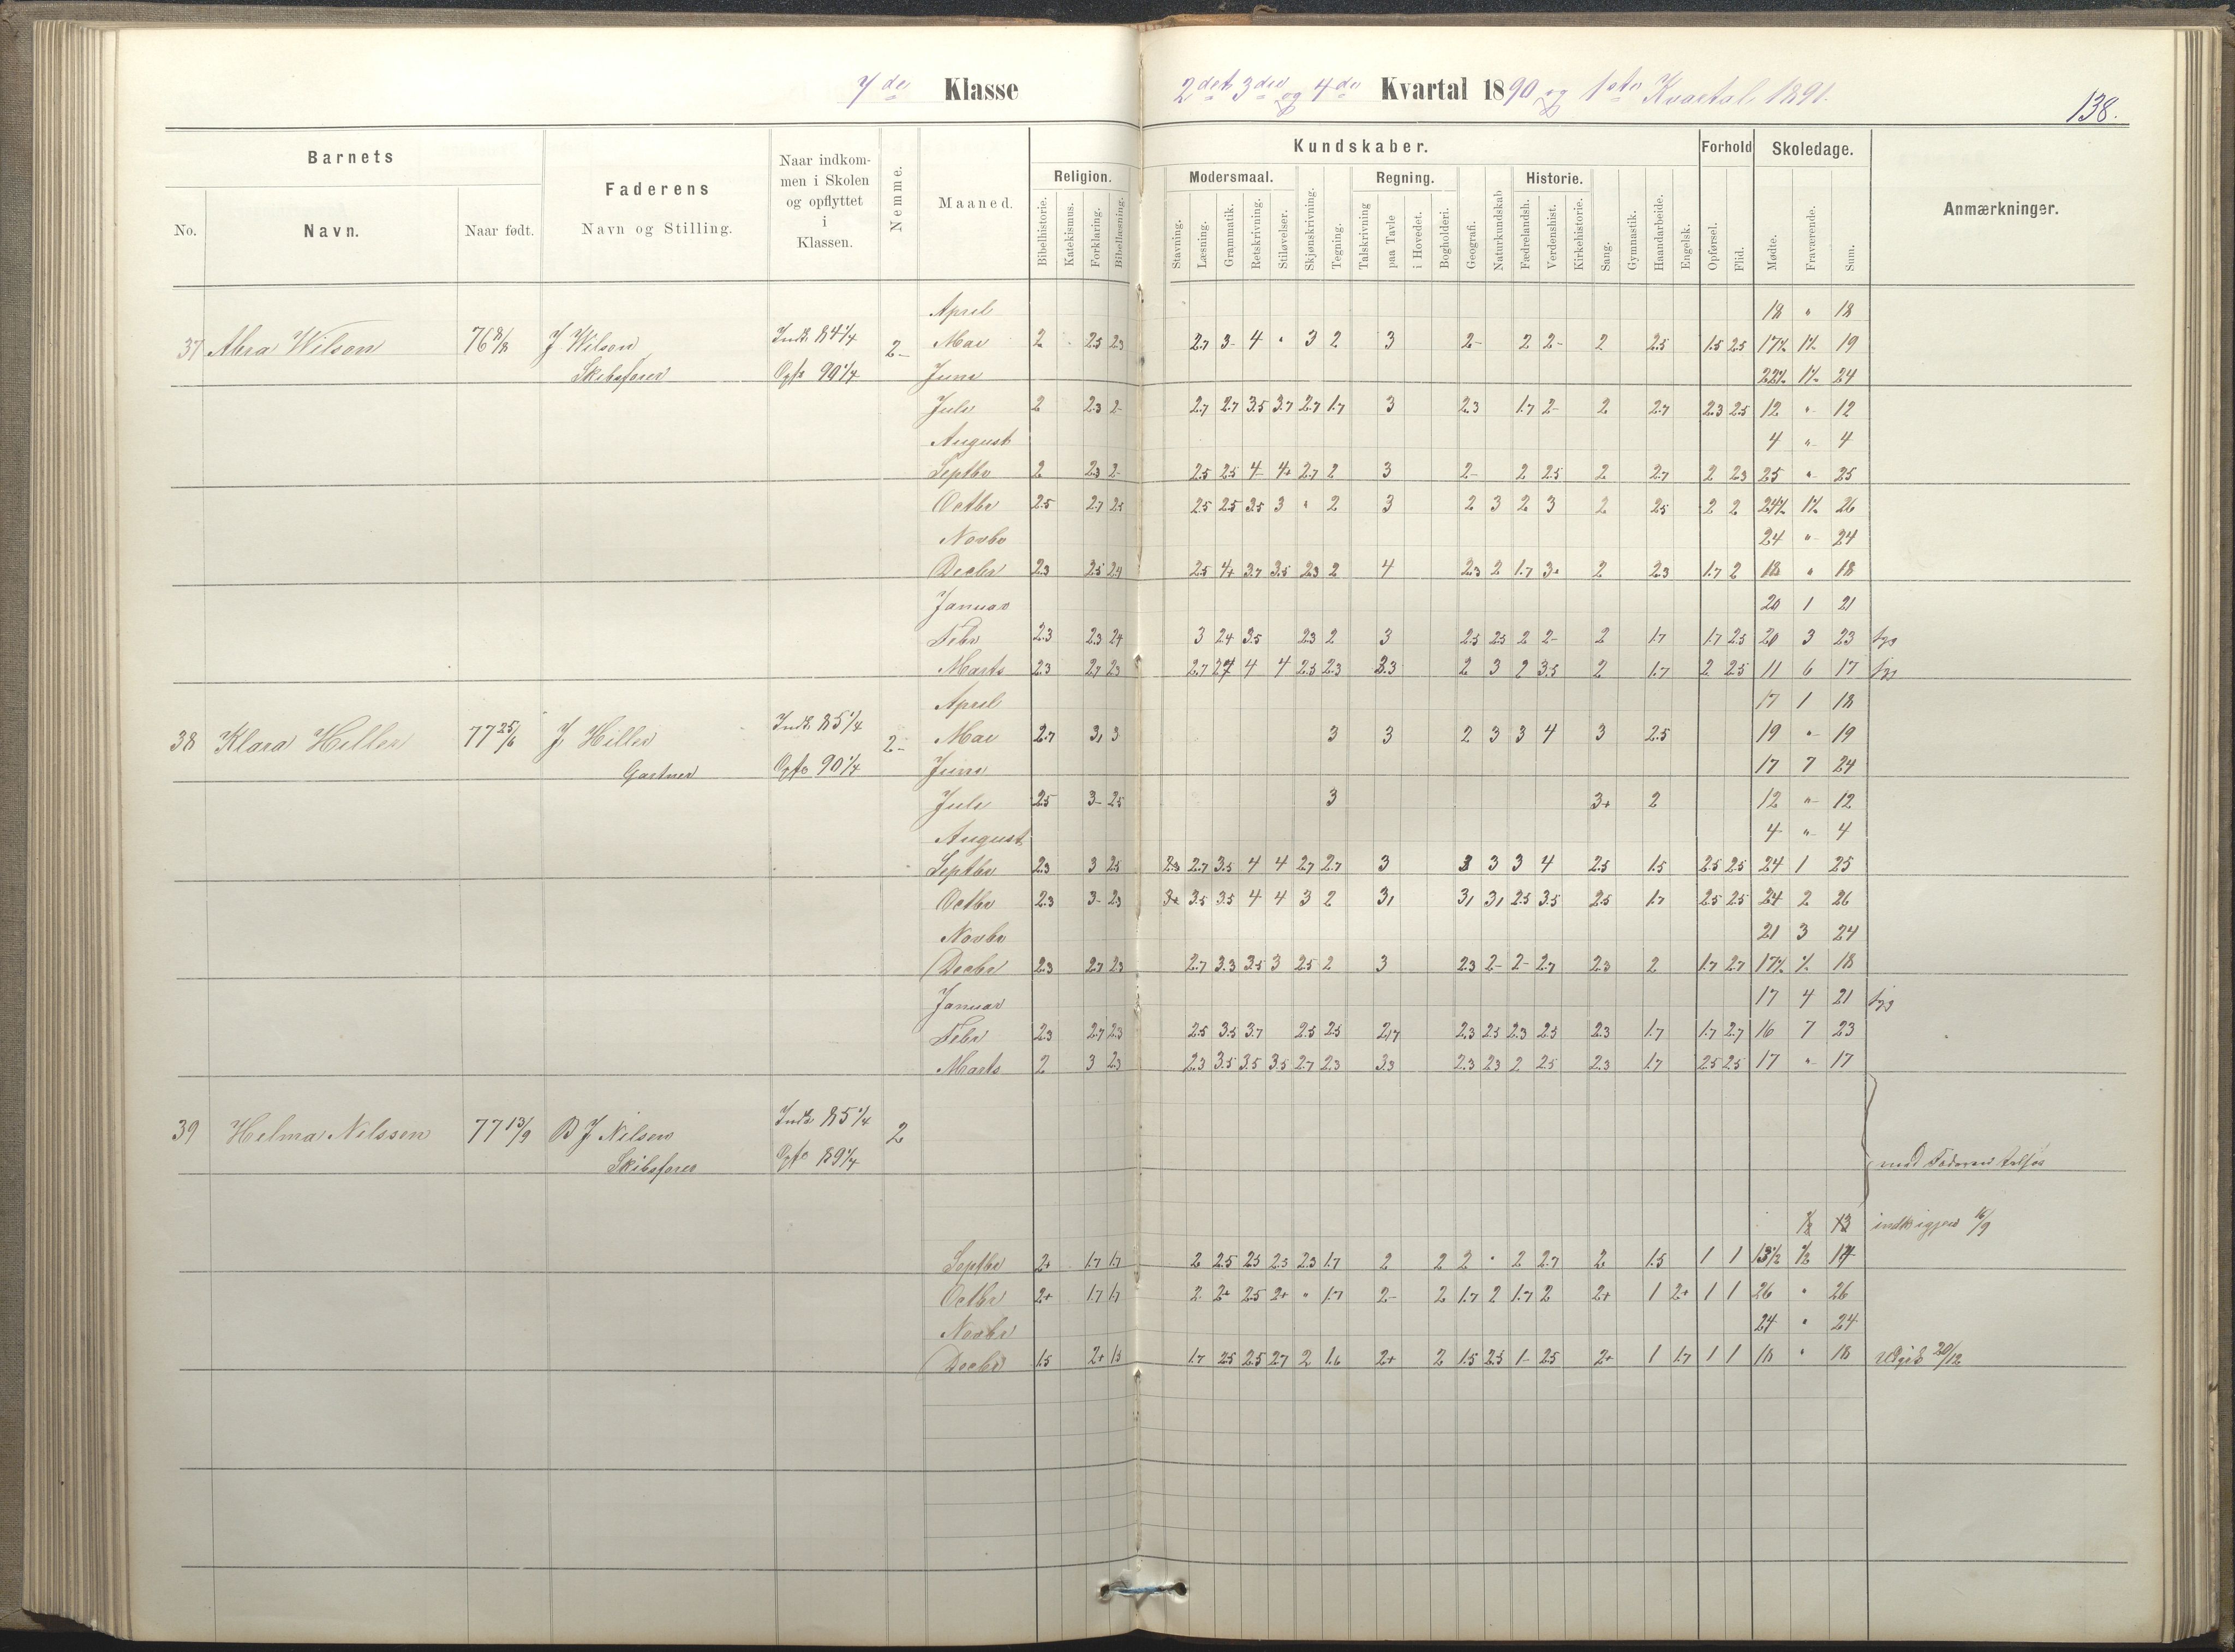 7de Klasse
2det 3die og 4de Kvartal 1890 og 1ste Kvartal 1891.
138.
Barnets
Faderens
Naar indkommen i Skolen og opflyttet i Klassen.
Nemme.
Maaned.
Religion.
Kundskaber.
Modersmaal.
Regning.
Historie.
Forhold
Skoledage.
Anmærkninger.
No.
Navn.
Naar født.
Navn og Stilling.
Bibelhistorie.
Katekismus.
Forklaring.
Bibellæsning.
Stavning.
Læsning.
Grammatik.
Retskrivning.
Stiløvelser.
Skjønskrivning.
Tegning.
Talskrivning
paa Tavle
i Hovedet.
Bogholderi.
Geografi.
Naturkundskab
Fædrelandsh.
Verdenshist.
Kirkehistorie.
Sang.
Gymnastik.
Haandarbeide.
Engelsk.
Opførsel.
Flid.
Mødte.
Fraværende.
Sum.
April 18 " 18
37 Wilson 76 8/8 J Wilson Indk. 84 1/4 2- Mai 2 2.5 2.3 2.7 3- 4 " 3 2 3 2- 2 2- 2 2.5 1.5 2.5 17½ 1½ 19
Skibsfører Opfl 90 1/4 Juni 22½ 1½ 24
Juli 2 2.3 2- 2.7 2.7 3.5 3.7 2.7 1.7 3 2.3 1.7 2- 2 2.7 2.3 2.5 12 " 12
August 4 " 4
Septbr 2 2.3 2- 2.5 2.5 4- 4+ 2.7 2 3 2- 2 2.5 2 2.7 2 2.3 25 " 25
Octbr 2.5 2.7 2.5 2.5 2.5 3.5 3 " 2 3 2 3 2 3 2 2.5 2 2 24½ 1½ 26
Novbr 24 " 24
Decbr 2.3 2.5 2.4 2.5 4+ 3.7 3.5 2.3 2 4 2.3 2 1.7 3+ 2 2.3 1.7 2 18 " 18
Januar 20 1 21
Febr 2.3 2.3 2.4 3 2.4 3.5 2.3 2 3 2.5 2.5 2 2- 2 1.7 1.7 2.5 20 3 23 syg
Marts 2.3 2.7 2.3 2.7 2.7 4 4 2.5 2.3 3.3 2 3 2 3.5 2 1.7 2 2.5 11 6 17 syg
April 17 1 18
38 Klara Hiller 77 25/6 J Hiller Indk. 85 1/4 2- Mai 2.7 3, 3 3 3 2 3 3 4 3 2.5 19 " 19
Gartner Opfl 90 1/4 Juni 17 7 24
Juli 2.5 3- 2.5 3 3+ 2 12 " 12
August 4 " 4
Septbr 2.3 3 2.5 2.3 2.7 3.5 4 4 2.7 2.7 3 3 3 3 4 2.5 1.5 2.5 2.5 24 1 25
Octbr 2.3 3- 2.3 3+ 3.5 3.5 4 4 3 2 3, 3, 3, 2.5 3.5 2.5 1.7 2.5 2.5 24 2 26
Novbr 21 3 24
Decbr 2.3 2.7 2.3 2.7 3.3 3.5 3 2.5 2 3 2.3 2- 2- 2.7 2.3 2 1.7 2.7 17½ ½ 18
Januar 17 4 21 syg
Febr 2.3 2.7 2.3 2.5 3.5 3.7 2.5 2.5 2.7 2.3 2.5 2.3 2.5 2.3 1.7 1.7 2.7 16 7 23
Marts 2 3 2.3 2.3 3.5 3.5 3.5 2.7 2.3 3.3 2.3 2.3 2 2.5 2.3 1.7 2.5 2.5 17 " 17
39 Helma Nilssen 77 13/9 B J Nilsen Indk 85 1/4 2
Skibsfører Opfl 89 1/4 med Faderen tilsjøs
indk igjen 16/9
Septbr 2+ 1.7 1.7 2 2.5 2.5 2.5 2.3 1.7 2 2 2 " 2 2.7 2 1.5 1 1 13½ ½ 14
Octbr 2+ 1.7 1.7 2 2+ 2.5 2+ " 1.7 2- 2 1.7 2 1.7 2 2+ 1 2+ 1 1 26 " 26
Novbr 24 " 24
Decbr 1.5 2+ 1.5 1.7 2.5 2.5 2.7 2 1.6 2+ 2 1.5 2.5 1- 2.5 2+ 1 1.7 1 1 18 " 18 Udgik 20/12